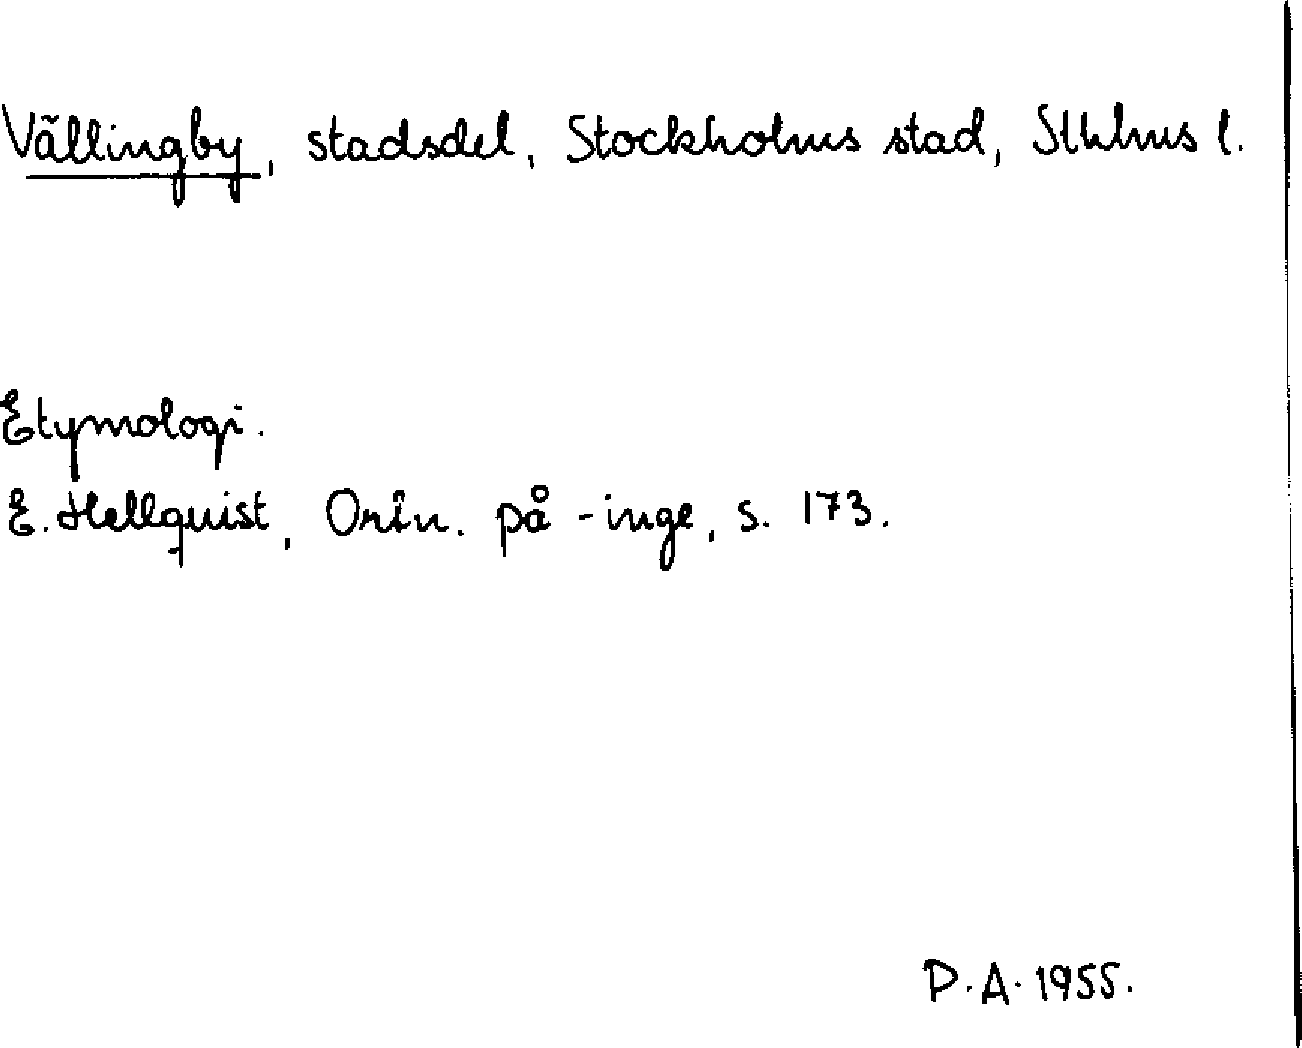 Vällingby, stadsdel, Stockholms stad, Sthlms l.
Etymologi.
E. Hellquist, Ortn. på -inge, s. 173.
P.A. 1955.